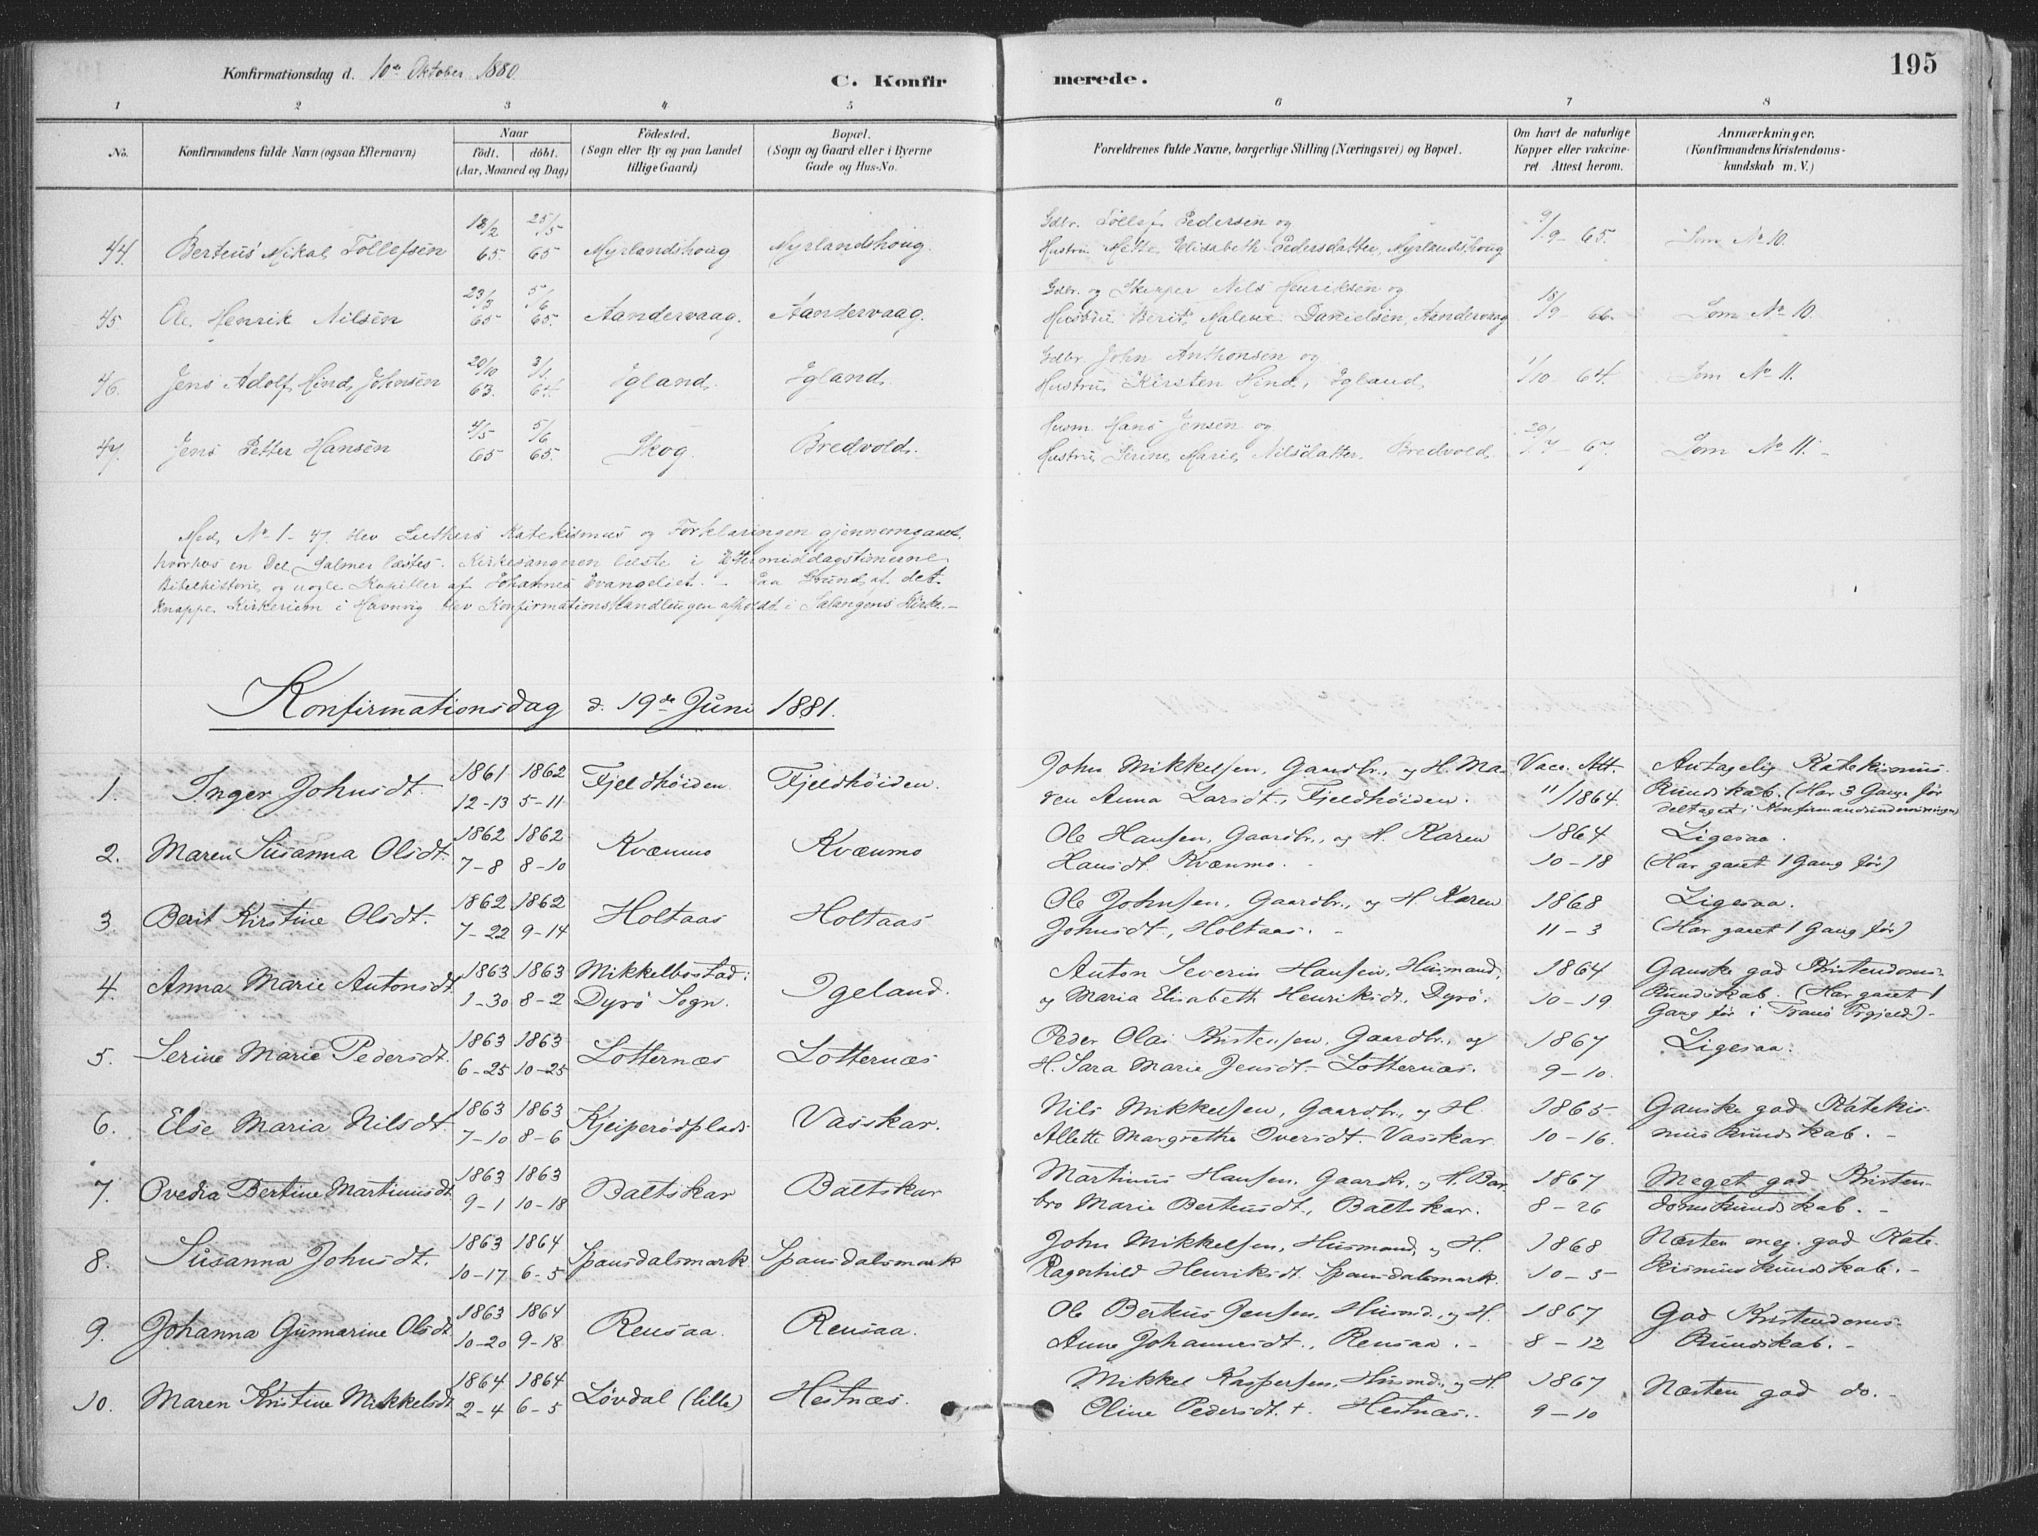 195
Konfirmationsdag d. 10de Oktober 1880
C. Konfirmerede.
1 2 3 4 5 6 7 8
No. Konfirmandens fulde Navn (ogsaa Efternavn) Naar födt. döbt. (Aar, Maaned og Dag) Födested. (Sogn eller By og paa Landet tillige Gaard) Bopæl. (Sogn og Gaard eller i Byerne Gade og Hus-No. Forældrenes fulde Navne, borgerlige Stilling (Næringsvei) og Bopæl. Om havt de naturlige Kopper eller vakcineret Attest herom. Anmærkninger. (Konfirmandens Kristendomskundskab m. V.)
18/2 25/5 Gdbr. Tollef Pedersen og 9/9 - 65.
44. Berteus Mikal Tollefsen 65. 65 Myrlandshoug Myrlandshoug. Hustru Mette Elisabeth Pedersdatter, Myrlandshoug Som No 10.
23/3 5/6 Gdbr. og Skipper Nils Henriksen og 18/9 - 66.
45 Ole Henrik Nilsen 65 65. Aandervaag. Aandervaag. Hustru Berit Malene Danielsen, Aandervaag Som No 10.
20/10 3/1 Gdbr. John Anthonsen og
46. Jens Adolf Hind Johnsen 63. 64. Igland. Igland. Hustru Kirsten Hind, Igland. 1/10 - 64. Som No 11.
4/5 5/6 Husm. Hans Jensen og
47. Jens Petter Hansen 65 65. Skog. Bredvold. Hustru Serine Marie Nilsdatter. Bredvold. 20/7 - 67. Som No 11. -
Med No 1 - 47 blev Luthers Katekismus og Forklaringen gjennemgaaet,
hvorhos en Del Salmer læstes. Kirkesangeren læste i Eftermiddagstimerne
Bibelhistorie og nogle Kapitler af Johannes Evangeliet. - Paa Grund af det
knappe Kirkerum i Havnvig blev Konfirmationshandlingen afholdt i Salangens Kirke. -
Konfirmationsdag d. 19de Juni 1881.
1861 1862 John Mikkelsen, Gaardbr., og H. Ma- Vacc. Att. Antagelig Katekismus-
1. Inger Johnsdt. 12-13 5-11 Fjeldhöiden. Fjeldhöiden. ren Anna Larsdt, Fjeldhöiden. 11/1864. kundskab. (Har 3 Gange før
deltaget i Konfirmandundervisningen)
1862 1862 Ole Hansen, Gaardbr., og H. Karen 1864 Ligesaa.
2. Maren Susanna Olsdt. 7-8 8-10 Kvænmo Kvænmo Hansdt. Kvænmo. - 10-18 (Har gaaet 1 Gang før)
1862 1862 Ole Johnsen, Gaardbr., og H Karen 1868 Ligesaa.
3 Berit Kirstine Olsdt. 7-22 9-14 Holtaas Holtaas Johnsdt, Holtaas. - 11-3 (Har gaaet 1 Gang før)
1863 1863 Mikkelbostad i Anton Severin Hansen, Husmand, 1864 Ganske god Kristendoms-
4. Anna Marie Antonsdt. 1-30 8-2 Dyrö Sogn. Igeland. og Maria Elisabeth Henriksdt. Dyrö. 10-19 kundskab. (Har gaaet 1
Gang før i Tranö Prgjeld). -
1863 1863 Peder Olai Kristensen, Gaardbr., og 1867
5. Serine Marie Pedersdt. 6-25 10-25 Lotternæs Lotternæs H. Sara Marie Jensdt - Lotternæs. 9-10. Ligesaa.
1863 1863 Nils Mikkelsen, Gaardbr., og H. 1865 Ganske god Katekis-
6. Else Maria Nilsdt. 7-10 8-6 Kjeiperödplads Vasskar. Allette Margrethe Iversdt. Vasskar. 10-16. muskundskab. -
1863 1863 Martinus Hansen, Gaardbr., og H. Bar- 1867 Meget god Kristen-
7. Ovedia Bertine Martinusdt 9-1 10-18 Baltskar Baltskar bro Marie Berteusdt., Baltskar. 8-26 domskundskab. -
1863 1864 John Mikkelsen, Husmand, og H. 1868 Næsten meg. god Kate-
8. Susanna Johnsdt. 10-17 6-5 Spansdalsmark Spansdalsmark Ragnhild Henriksdt. Spansdalsmark. 10-5- kismuskundskab. -
1863 1864 Ole Berteus Jensen, Husmd., og H. 1867 God Kristendoms-
9. Johanna Gunnarine Olsdt. 10-20 9-18 Rensaa. Rensaa. Anne Johannesdt., Rensaa. - 8-12 kundskab. -
1864 1864 Mikkel Kaspersen, Husmd., og H. 1867
10. Maren Kristine Mikkelsdt 2-4 6-5 Lövdal (lille) Hestnæs. Oline Pedersdt. +. Hestnæs. 9-10 Næsten god do. -